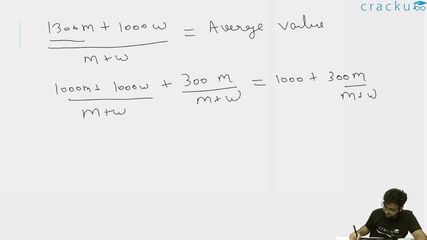 cracku
1300m + 1000w / m+w = Average value
1000m + 1000w / m+w + 300 m / m+w = 1000 + 300m / m+w